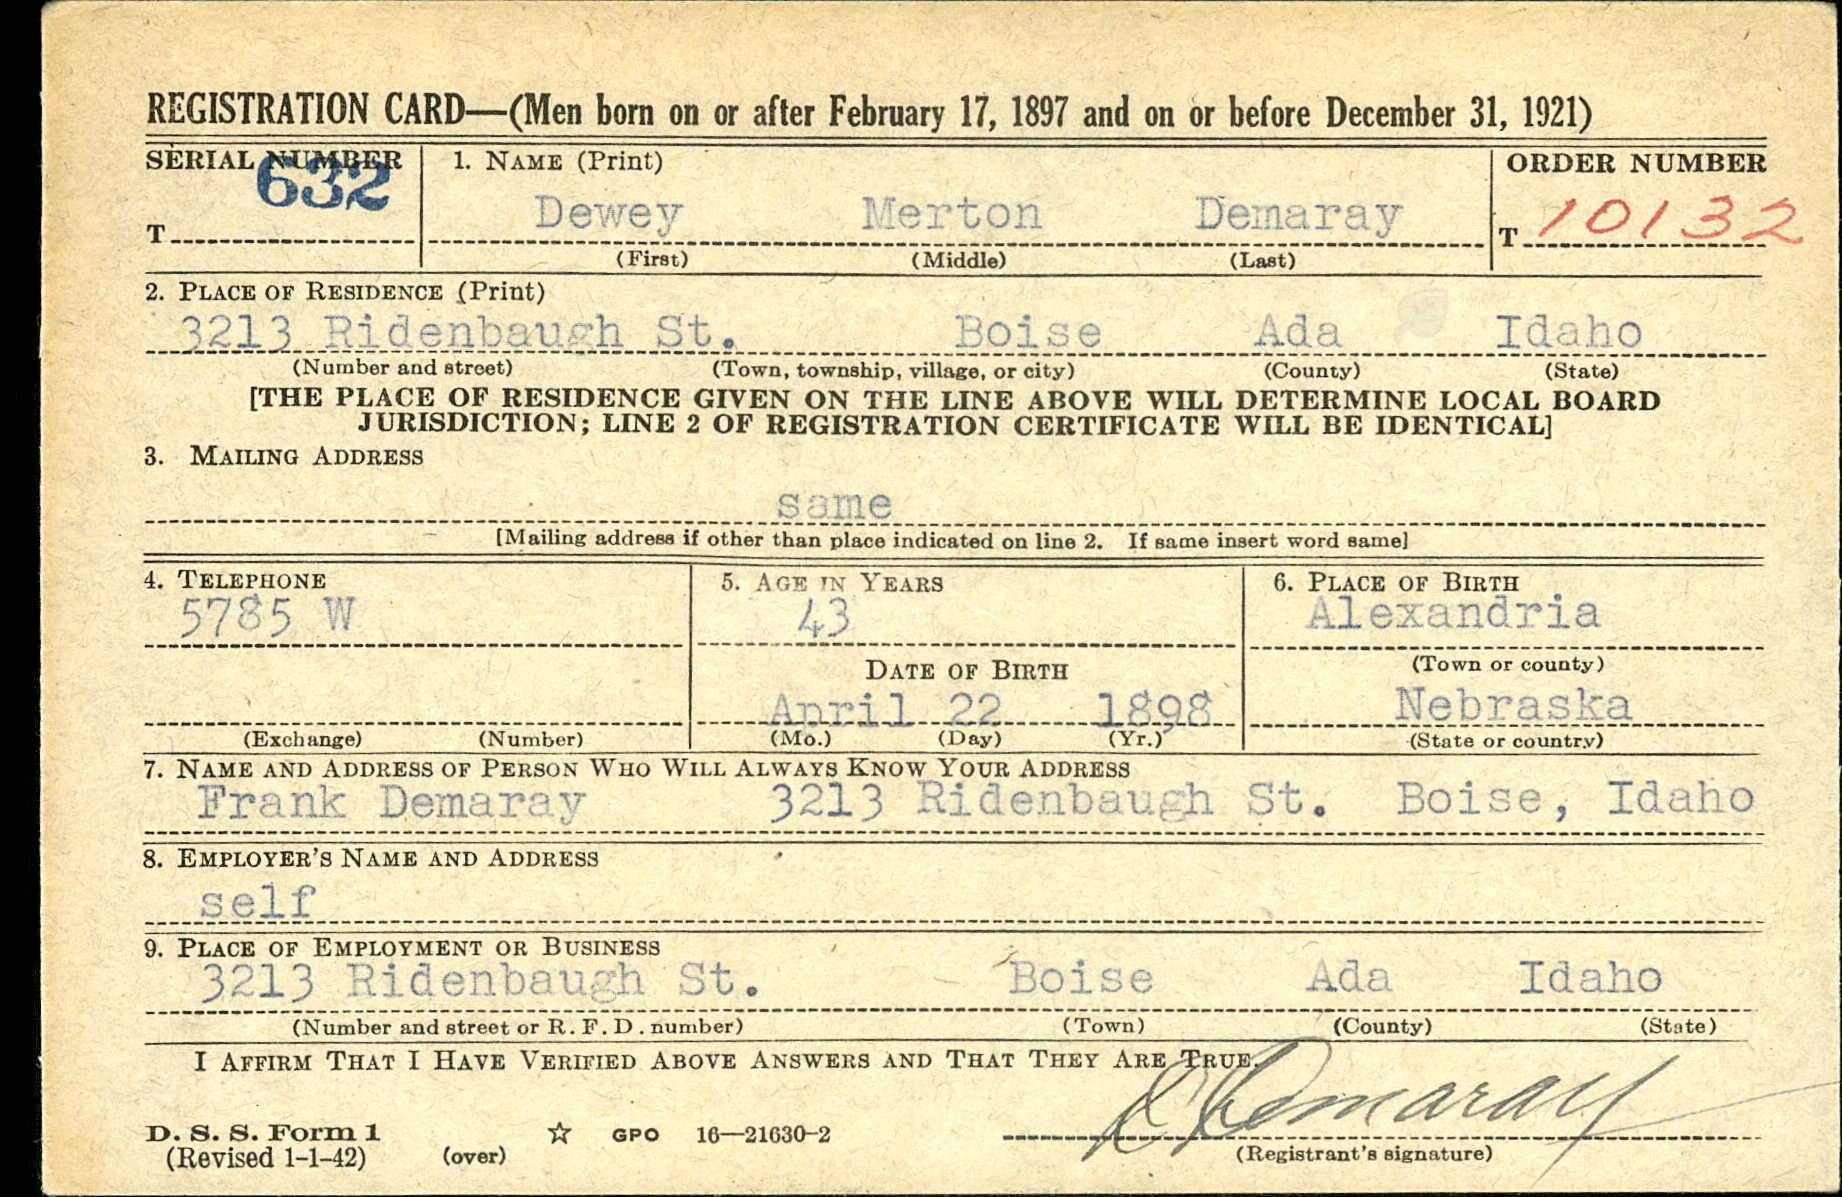 REGISTRATION CARD—(Men born on or after February 17, 1897 and on or before December 31, 1921)
SERIAL NUMBER 1. NAME (Print) ORDER NUMBER
632
T Dewey Merton Demaray T 10132
(First) (Middle) (Last)
2. PLACE OF RESIDENCE (Print)
3213 Ridenbaugh St. Boise Ada Idaho
(Number and street) (Town, township, village, or city) (County) (State)
[THE PLACE OF RESIDENCE GIVEN ON THE LINE ABOVE WILL DETERMINE LOCAL BOARD
JURISDICTION; LINE 2 OF REGISTRATION CERTIFICATE WILL BE IDENTICAL]
3. MAILING ADDRESS
same
[Mailing address if other than place indicated on line 2. If same insert word same]
4. TELEPHONE 5. AGE IN YEARS 6. PLACE OF BIRTH
5785 W 43 Alexandria
DATE OF BIRTH (Town or county)
April 22 1898 Nebraska
(Exchange) (Number) (Mo.) (Day) (Yr.) (State or country)
7. NAME AND ADDRESS OF PERSON WHO WILL ALWAYS KNOW YOUR ADDRESS
Frank Demaray 3213 Ridenbaugh St. Boise, Idaho
8. EMPLOYER'S NAME AND ADDRESS
self
9. PLACE OF EMPLOYMENT OR BUSINESS
3213 Ridenbaugh St. Boise Ada Idaho
(Number and street or R. F. D. number) (Town) (County) (State)
I AFFIRM THAT I HAVE VERIFIED ABOVE ANSWERS AND THAT THEY ARE TRUE.
D Demaray
D. S. S. Form 1 ☆ GPO 16—21630-2
(Revised 1-1-42) (over) (Registrant's signature)